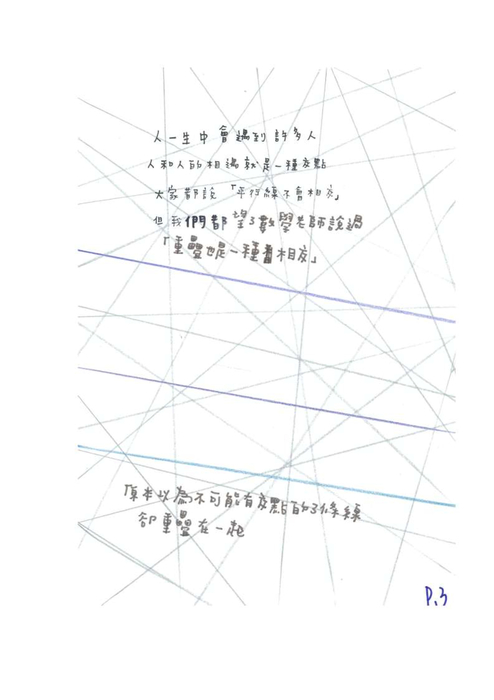 人一生中會遇到許多人
人和人的相遇就是一種交點
大家都說「平行線不會相交」
但我們都望了數學老師說過
「重疊也是一種相交」
原本以為不可能有交點的3條線
卻重疊在一起
P.3